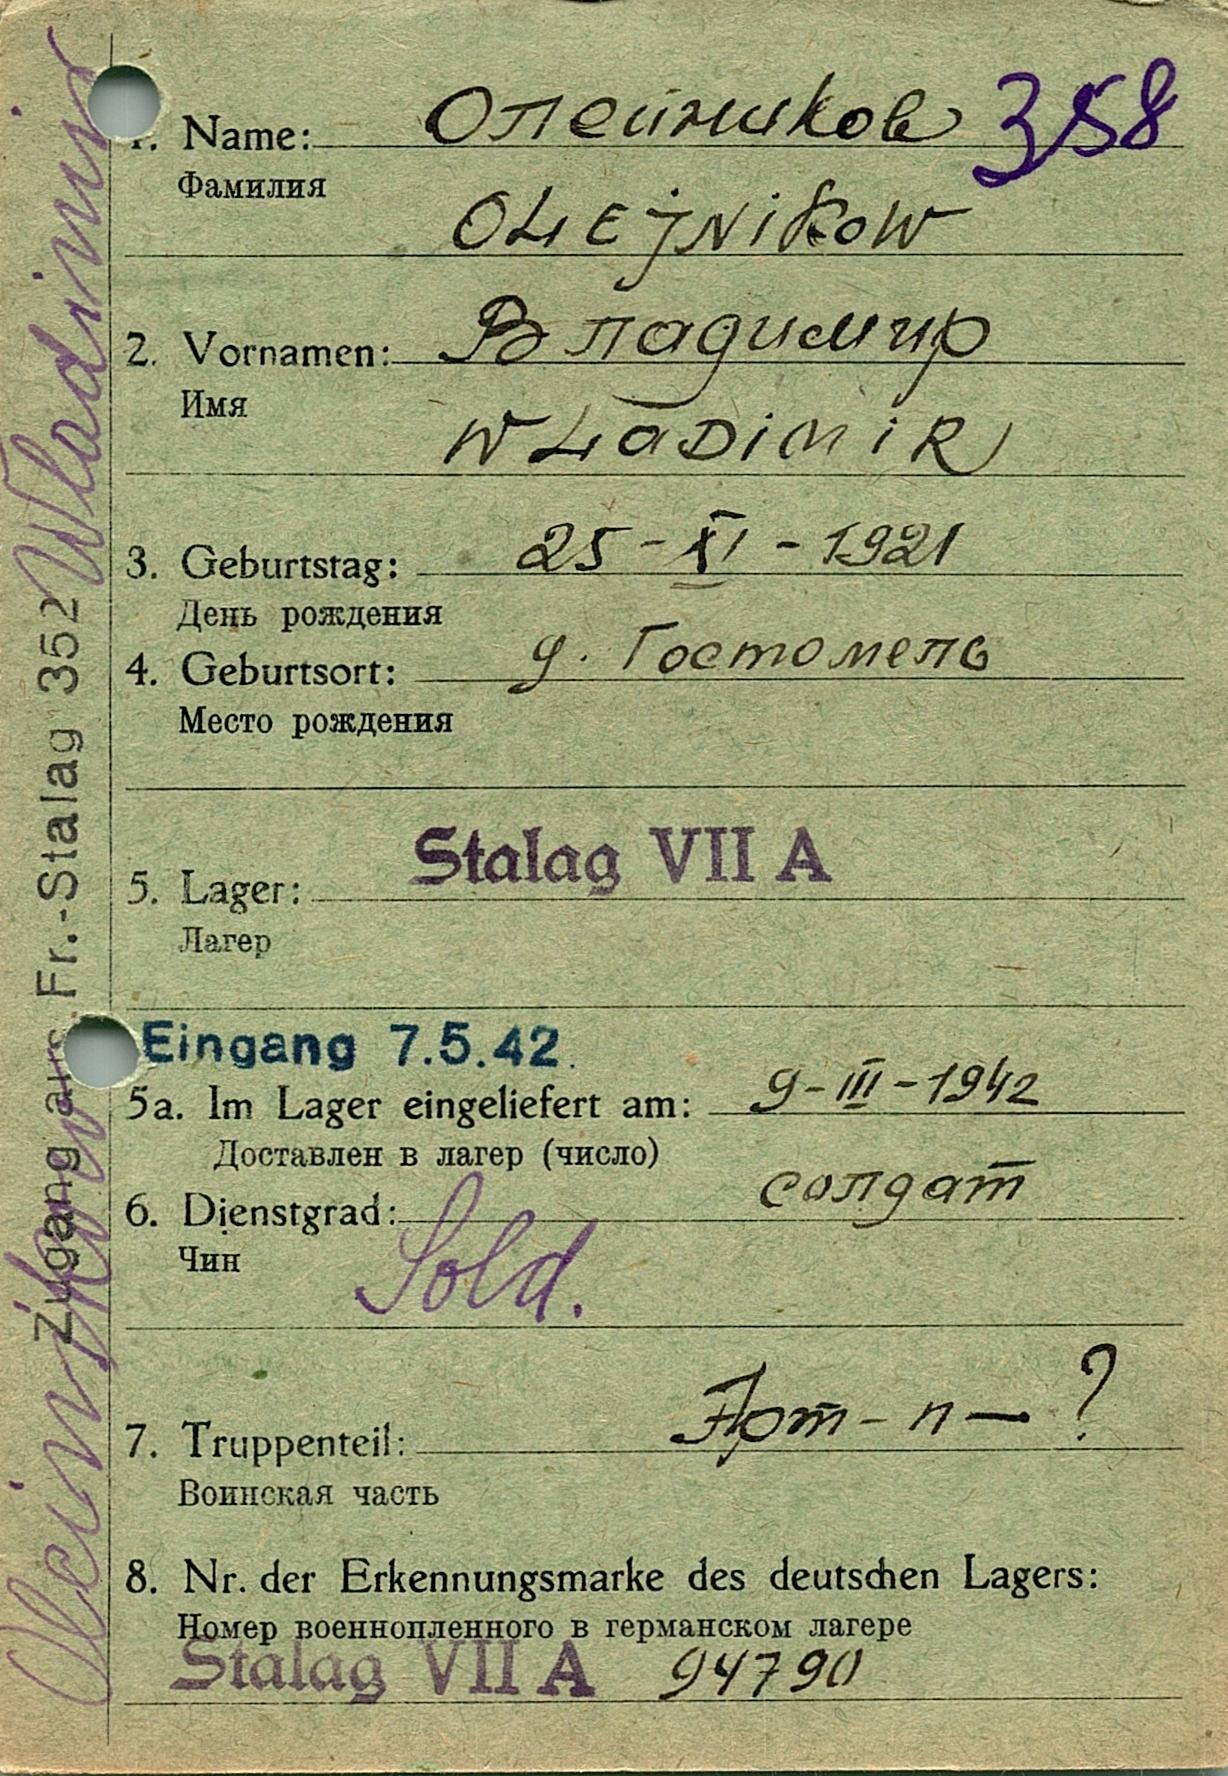 1. Name: Олейников 358
Фамилия
OLEjNiKoW
2. Vornamen: Владимир
Имя
WLaDiMiR
3. Geburtstag: 25-XI-1921
День рождения
4. Geburtsort: д. Гостомель
Место рождения
Stalag VII A
5. Lager:
Лагер
Eingang 7.5.42.
5a. Im Lager eingeliefert am: 9-III-1942
Доставлен в лагер (число)
6. Dienstgrad: солдат
Чин Sold.
7. Truppenteil: Арт-п— ?
Воинская часть
8. Nr. der Erkennungsmarke des deutschen Lagers:
Номер военнопленного в германском лагере
Stalag VII A 94790
Zugang aus Fr.-Stalag 352
Oleinikow Wladimir